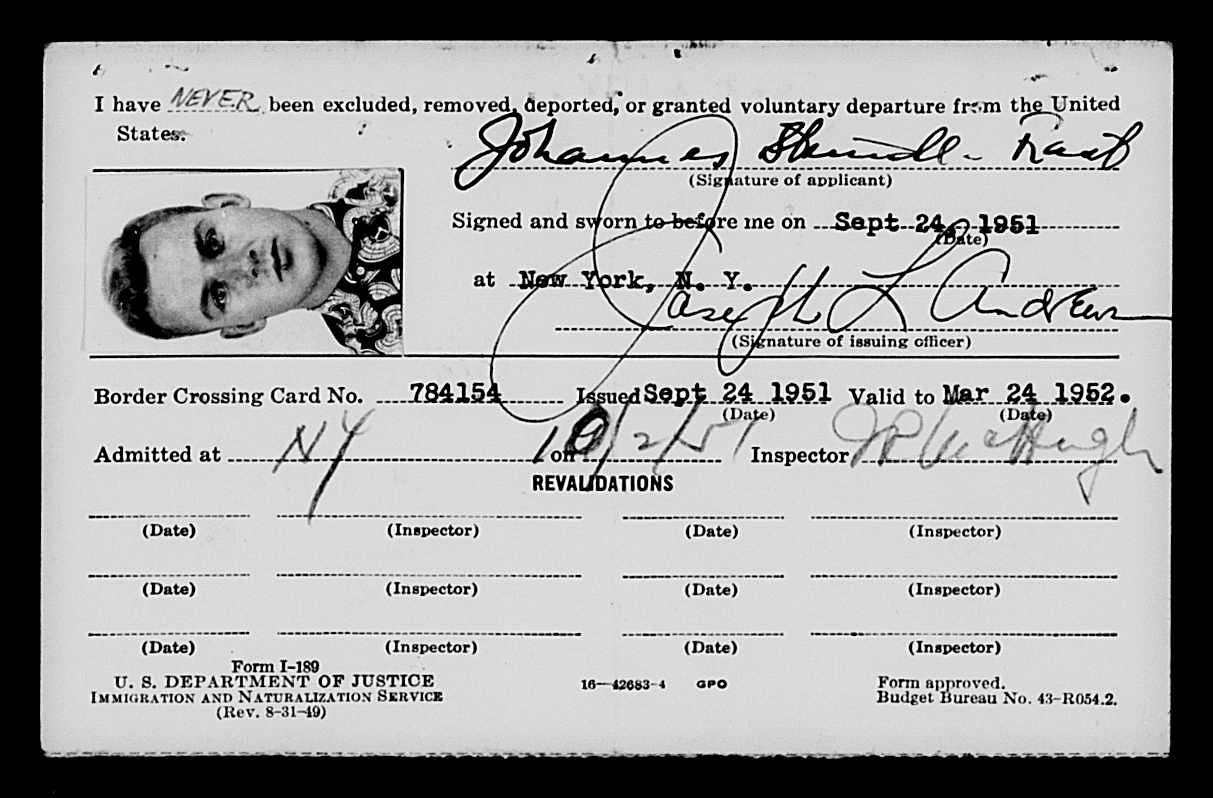 I have NEVER been excluded, removed, deported, or granted voluntary departure from the United
States.
Johannes
(Signature of applicant)
Signed and sworn to before me on Sept 24, 1951
(Date)
at New York, N. Y.
Joseph L Andrews
(Signature of issuing officer)
Border Crossing Card No. 784154 Issued Sept 24 1951 Valid to Mar 24 1952.
(Date) (Date)
Admitted at NY on 10/2/51 Inspector
REVALIDATIONS
(Date) (Inspector) (Date) (Inspector)
(Date) (Inspector) (Date) (Inspector)
(Date) (Inspector) (Date) (Inspector)
Form I-189
U. S. DEPARTMENT OF JUSTICE 16—42683-4 GPO Form approved.
IMMIGRATION AND NATURALIZATION SERVICE Budget Bureau No. 43-R054.2.
(Rev. 8-31-49)